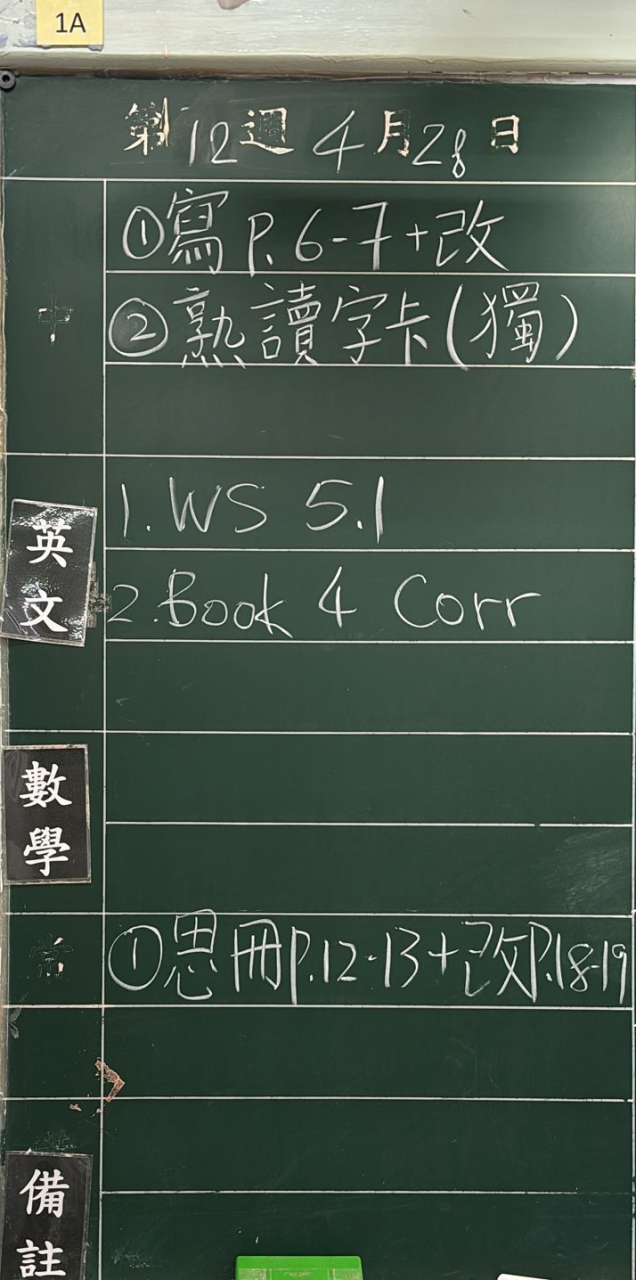 1A
第12週4月28日
中
①寫P.6-7+改
②熟讀字卡(獨)
英文
1.WS 5.1
2.Book 4 Corr
數學
常
①思冊P.12-13+改P.18-19
備註